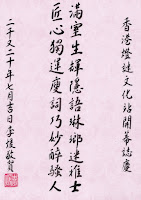 香港燈謎文化站開幕誌慶
滿室生輝隱語琳瑯迷雅士
匠心獨運廋詞巧妙醉騷人
二千又二十年七月吉日